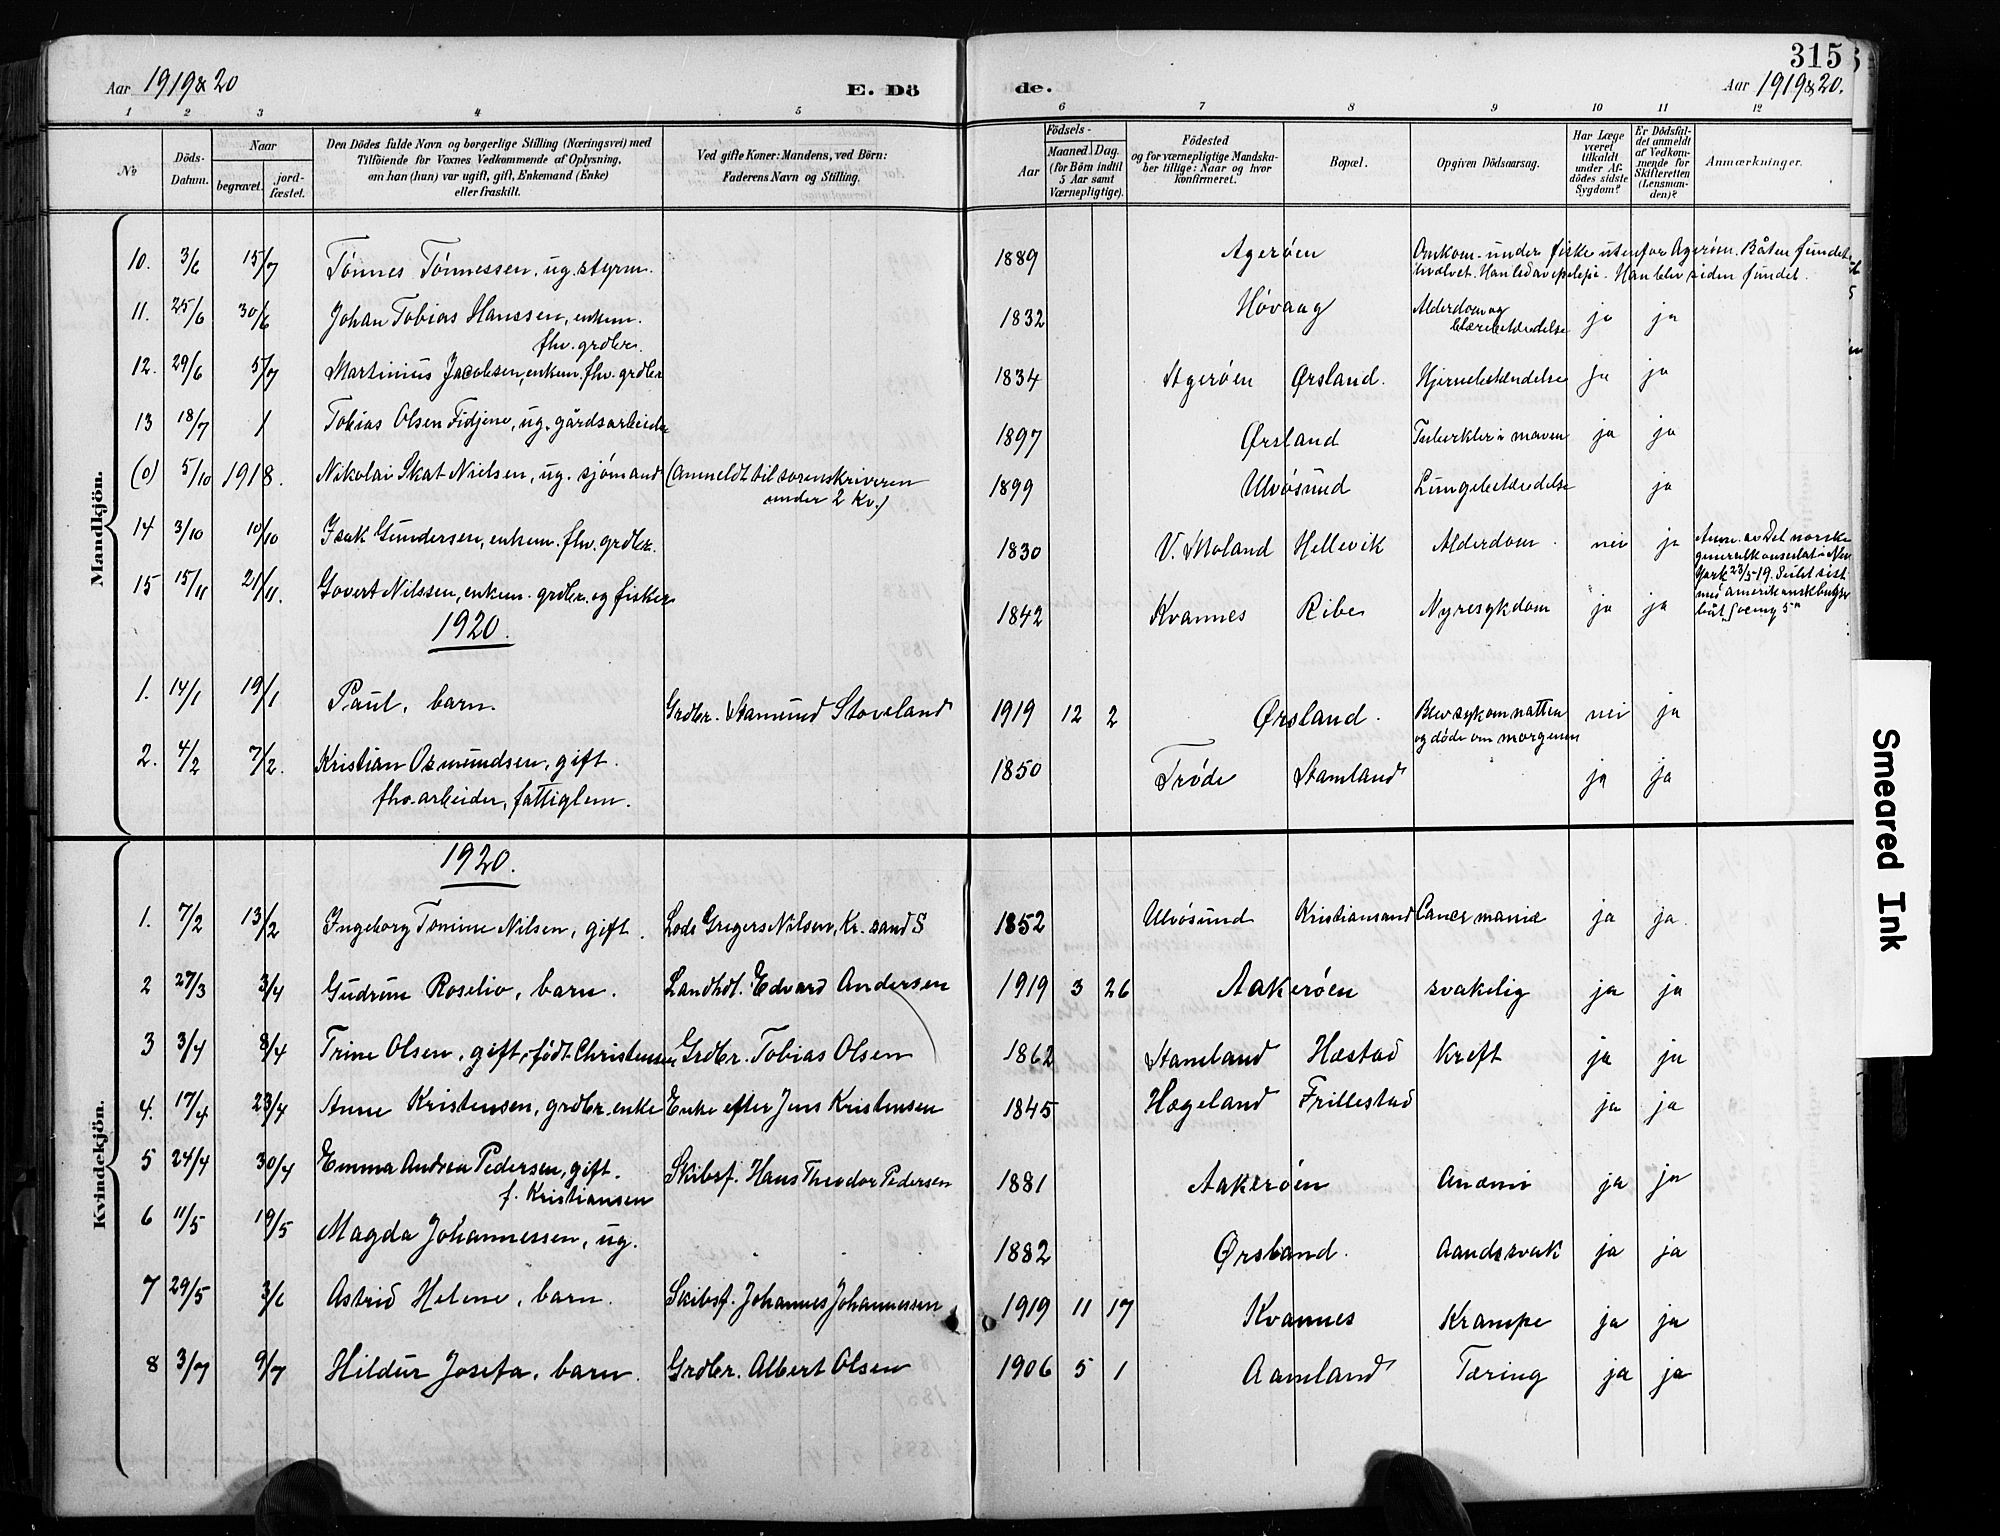 315
Aar 1919 & 20
E. Dö
de.
Aar 1919 & 20.
1 2 3 4 5 6 7 8 9 10 11 12
№
Döds-Datum.
Naar
begravet.
jord-fæstet.
Den Dödes fulde Navn og borgerlige Stilling (Næringsvei) med
Tilföiende for Voxnes Vedkommende af Oplysning,
om han (hun) var ugift, gift, Enkemand (Enke)
eller fraskilt.
Ved gifte Koner: Mandens, ved Börn:
Faderens Navn og Stilling.
Födsels-
Aar
Maaned. Dag.
(for Börn indtil
5 Aar samt
Værnepligtige).
Födested
og for værnepligtige Mandska-
ber tillige: Naar og hvor
konfirmeret.
Bopæl.
Opgiven Dödsaarsag.
Har Læge
været
tilkaldt
under Af-
dödes sidste
Sygdom?
Er Dödsfal-
det anmeldt
af Vedkom-
mende for
Skifteretten
(Lensman-
den)?
Anmærkninger.
Mandkjön.
10. 3/6 15/7 Tönnes Tönnessen, ug. styrm. 1889 Agerøen Omkom under fiske utenfor Agerøen. Båten fundet
hvælvet. Han led av epilepsi. Han blev siden fundet.
11. 25/6 30/6 Johan Tobias Hanssen, enkem. 1832 Høvaag Alderdom og
blærebetændelse ja ja
fhv. grdbr.
12. 29/6 5/7 Martinius Jacobsen, enkem. fhv. grdbr 1834 Agerøen Ørsland. Hjernebetændelse ja ja
13 18/7 / Tobias Olsen Fidjene, ug. gårdsarbeider 1897 Ørsland Tuberkler i maven ja ja
(0) 5/10 1918. Nikolai Skat Nielsen, ug. sjömand (Anmeldt til sorenskriveren
under 2 Kv.) 1899 Ulvösund Lungebetændelse ja
14 3/10 10/10 Isak Gundersen, enkem. fhv. grdbr. 1830 V. Moland Hellevik Alderdom. nei ja Anm. av Det norske
generalkonsulat i New
York 23/5-19. Seilet sist
med amerikansk bugser
båt "Socony 5"
15 15/11 21/11. Govert Nilssen, enkem. grdbr. og fisker 1842 Kvannes Ribe Nyresykdom ja ja
1920.
1. 14/1 19/1 Paul, barn. Grdbr. Aamund Stoveland 1919 12 2 Ørsland. Blev syk om natten
og døde om morgenen nei ja
2. 4/2 7/2. Kristian Osmundsen, gift. 1850 Trøde Aamland ja ja
fhv. arbeider, fattiglem.
Kvindekjön.
1920.
1. 7/2 13/2 Ingeborg Tomine Nilsen, gift. Lods Gregers Nilsen, Kr.sand S 1852 Ulvösund Kristiansand Cancer mamæ ja ja
2 27/3 3/4 Gudrun Roselio, barn. Landhdl. Edvard Andersen 1919 3 26 Aakerøen svakelig ja ja
3 3/4 8/4 Trine Olsen, gift, født Christensen Grdbr. Tobias Olsen 1862 Aamland Hæstad Kreft ja ja
4. 17/4 23/4 Anne Kristensen, grdbr. enke Enke efter Jens Kristensen 1845 Hægeland Frillestad ja ja
5 24/4 30/4 Emma Andrea Pedersen, gift. Skibsf. Hans Theodor Pedersen 1881 Aakerøen Anæmi ja ja
f. Kristiansen
6 11/5 19/5 Magda Johannessen, ug. 1882 Ørsland. Aandssvak ja ja
7 29/5 3/6 Astrid Helene, barn. Skibsf. Johannes Johannessen 1919 11 17 Kvannes Krampe ja ja
8 3/7 9/7 Hildur Josefa, barn. Grdbr. Albert Olsen 1906 5 1 Aamland Tæring ja ja
Smeared Ink